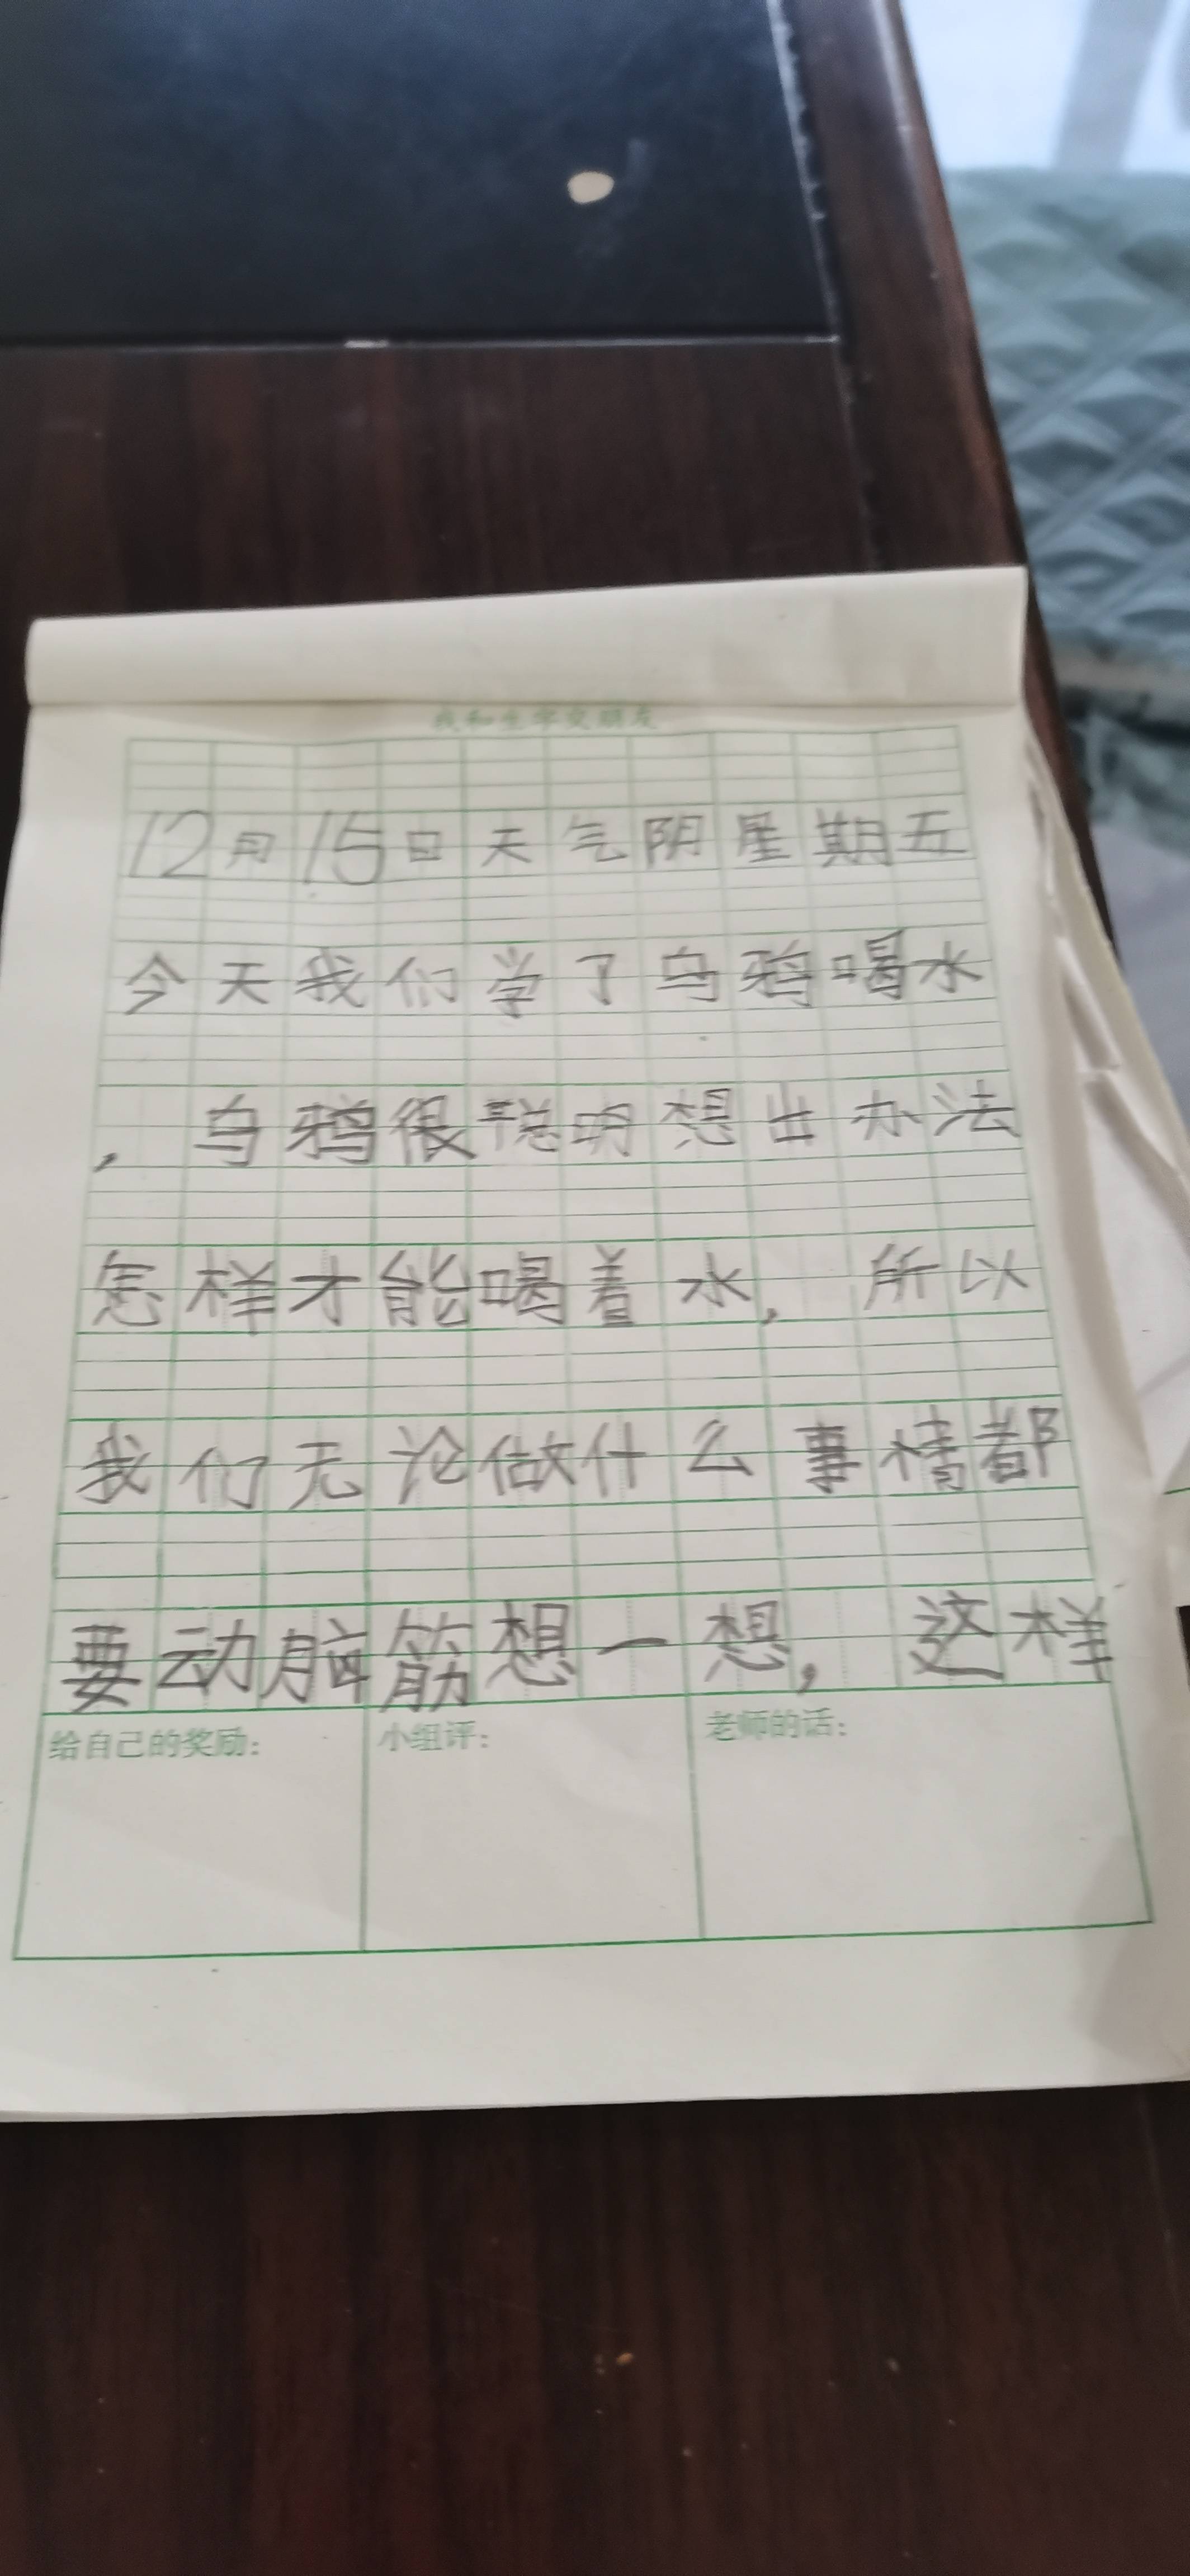 我和生字交朋友
12月15日天气阴星期五
今天我们学了乌鸦喝水
，乌鸦很聪明想出办法
怎样才能喝着水，所以
我们无论做什么事情都
要动脑筋想一想，这样
给自己的奖励：
小组评：
老师的话：